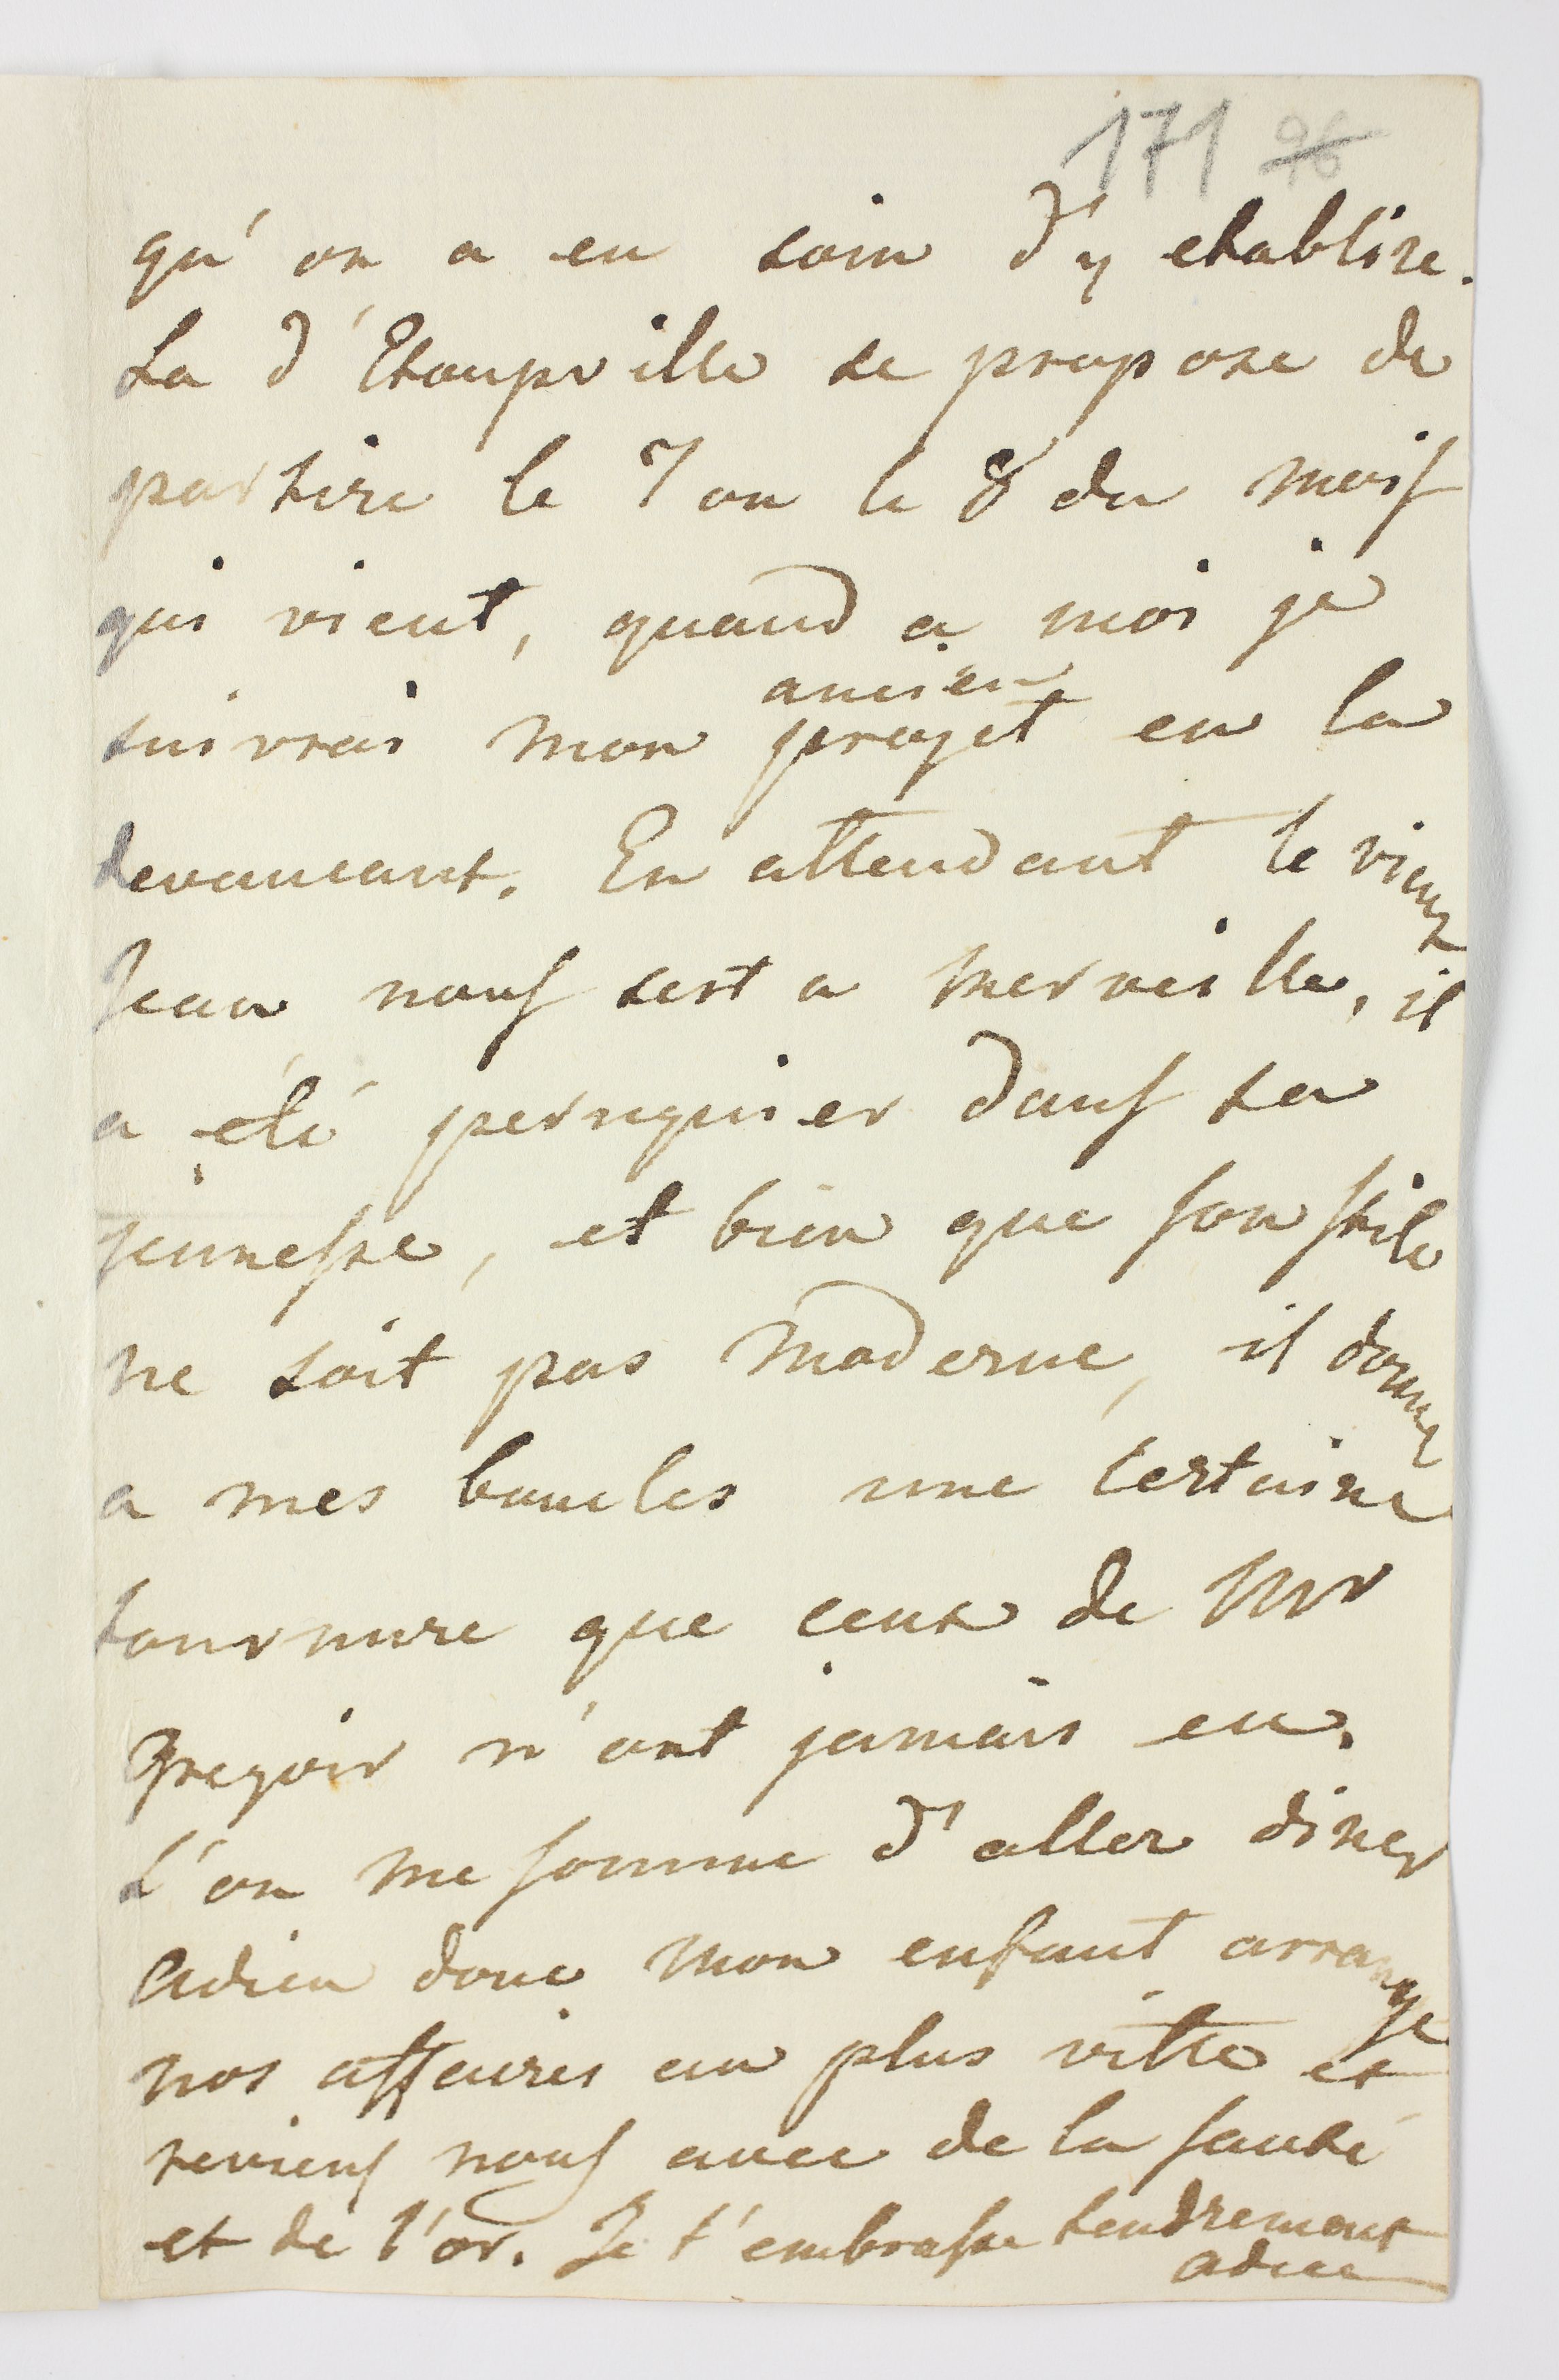 171 96
qu'on a eu soin d'y etablire.
La d'Etoupville se propose de
partire le 7 ou le 8 du mois
qui vient, quand a moi je
ancien
suivrai mon projet en la
devancant. En attendant le vieux
Jean nous sert a merveille, il
a été peruquier dans sa
jeunesse, et bien que son stile
ne soit pas moderne, il donne
a mes boucles une certaine
tournure que ceux de Mr
Gregoir n'ont jamais eu.
L'on me somme d'aller diner
adieu donc mon enfant arrange
nos affaires au plus vitte et
reviens nous avec de la santé
et de l'or. Je t'embrasse tendrement
adieu